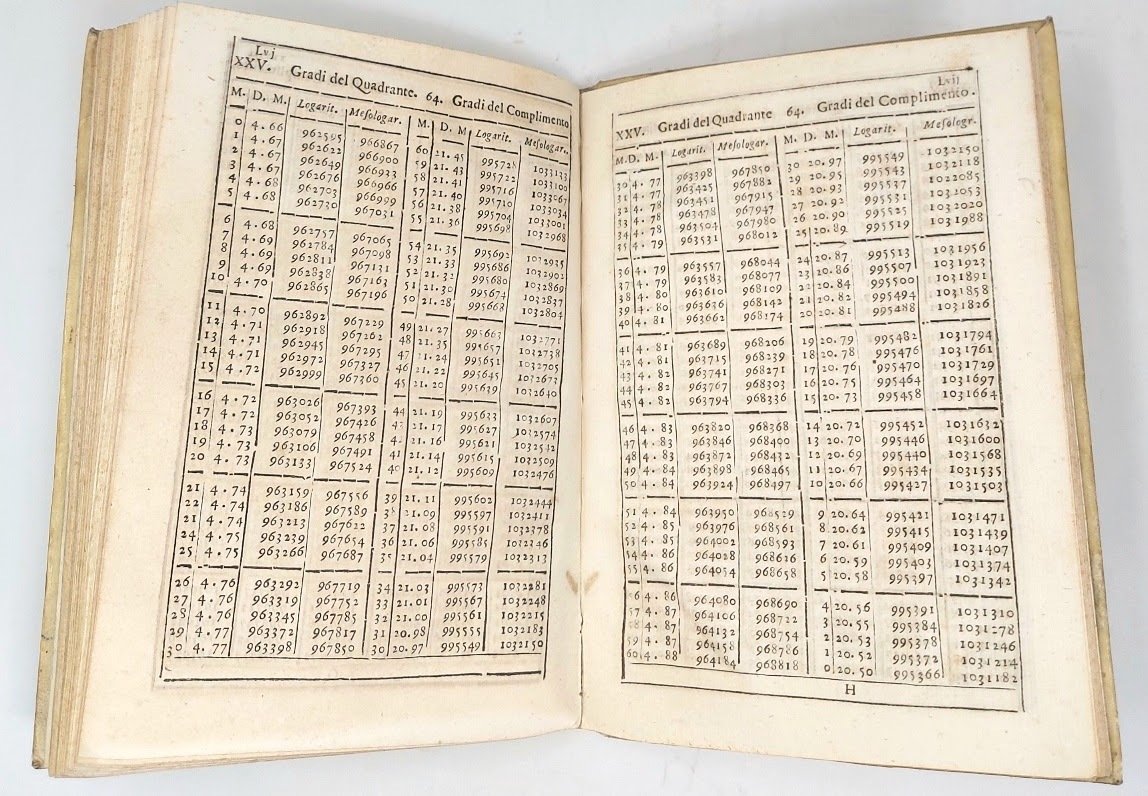 Lvj
XXV. Gradi del Quadrante. 64. Gradi del Complimento
M. D. M. Logarit. Mesologar. M. D. M Logarit. Mesologar.
0 4.66 962595 966867 60 21.45 995728 1033133
1 4.67 962622 966900 59 21.43 995722 1033100
2 4.67 962649 966933 58 21.41 995716 1033067
3 4.67 962676 966966 57 21.40 995710 1033034
4 4.68 962703 966999 56 21.38 995704 1033001
5 4.68 962730 967031 55 21.36 995698 1032968
6 4.68 962757 967065 54 21.35 995692 1032935
7 4.69 962784 967098 53 21.33 995686 1032902
8 4.69 962811 967131 52 21.32 995680 1032869
9 4.69 962838 967163 51 21.30 995674 1032837
10 4.70 962865 967196 50 21.28 995668 1032804
11 4.70 962892 967229 49 21.27 995663 1032771
12 4.71 962918 967262 48 21.35 995657 1032738
13 4.71 962945 967295 47 21.24 995651 1032705
14 4.71 962972 967327 46 21.22 995645 1032673
15 4.72 962999 967360 45 21.20 995639 1032640
16 4.72 963026 967393 44 21.19 995633 1032607
17 4.72 963052 967426 43 21.17 995627 1032574
18 4.73 963079 967458 42 21.16 995621 1032542
19 4.73 963106 967491 41 21.14 995615 1032509
20 4.73 963133 967524 40 21.12 995609 1032476
21 4.74 963159 967556 39 21.11 995602 1032444
22 4.74 963186 967589 38 21.09 995597 1032411
21 4.74 963213 967622 37 21.08 995591 1032378
24 4.75 963239 967654 36 21.06 995585 1032346
25 4.75 963266 967687 35 21.04 995579 1032313
26 4.76 963292 967719 34 21.03 995573 1032281
27 4.76 963319 967752 33 21.01 995567 1032248
28 4.76 963345 967785 32 21.00 995561 1032215
29 4.77 963372 967817 31 20.98 995555 1032183
30 4.77 963398 967850 30 20.97 995549 1032150
Lvij
XXV. Gradi del Quadrante 64. Gradi del Complimento.
M. D. M. Logarit. Mesologar. M. D. M. Logarit. Mesologr.
30 4.77 963398 967850 30 20.97 995549 1032150
31 4.77 963425 967882 29 20.95 995543 1032118
32 4.78 963451 967915 28 20.93 995537 1022085
33 4.78 963478 967947 27 20.92 995531 1032053
34 4.78 963504 967980 26 20.90 995525 1032020
35 4.79 963531 968012 25 20.89 995519 1031988
36 4.79 963557 968044 24 20.87 995513 1031956
37 4.79 963583 968077 23 20.86 995507 1031923
38 4.80 963610 968109 22 20.84 995500 1031891
39 4.80 963636 968142 21 20.82 995494 1031858
40 4.81 963662 968174 20 20.81 995488 1031826
41 4.81 963689 968206 19 20.79 995482 1031794
42 4.81 963715 968239 18 20.78 995476 1031761
43 4.82 963741 968271 17 20.76 995470 1031729
44 4.82 963767 968303 16 20.75 995464 1031697
45 4.82 963794 968336 15 20.73 995458 1031664
46 4.83 963820 968368 14 20.72 995452 1031632
47 4.83 963846 968400 13 20.70 995446 1031600
48 4.83 963872 968432 12 20.69 995440 1031568
49 4.84 963898 968465 11 20.67 995434 1031535
50 4.84 963924 968497 10 20.66 995427 1031503
51 4.84 963950 968529 9 20.64 995421 1031471
52 4.85 963976 968561 8 20.62 995415 1031439
53 4.85 964002 968593 7 20.61 995409 1031407
54 4.86 964028 968626 6 20.59 995403 1031374
55 4.86 964054 968658 5 20.58 995397 1031342
56 4.86 964080 968690 4 20.56 995391 1031310
57 4.87 964106 968722 3 20.55 995384 1031278
58 4.87 964132 968754 2 20.53 995378 1031246
59 4.87 964158 968786 1 20.52 995372 1031214
60 4.88 964184 968818 0 20.50 995366 1031182
H